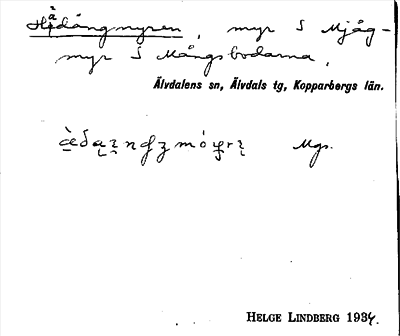 Hädångmyren, myr S Mjåg-
myr S Mångsbodarna,
Älvdalens sn, Älvdals tg, Kopparbergs län.
Mgs.
HELGE LINDBERG 1934.